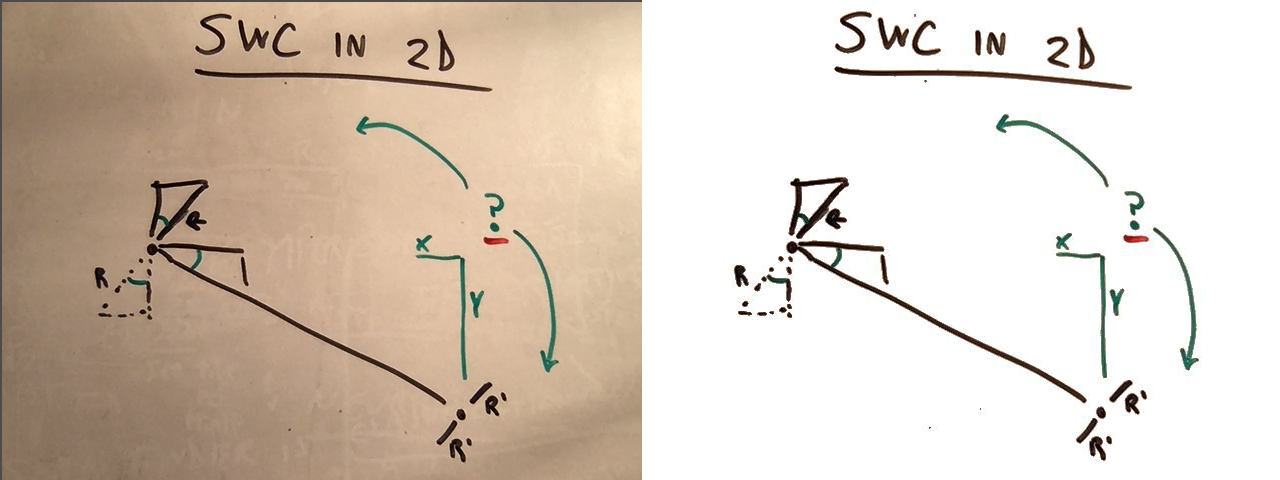 SWC IN 2D
?
R
X
R
Y
R'
R'
SWC IN 2D
?
R
X
R
Y
R'
R'